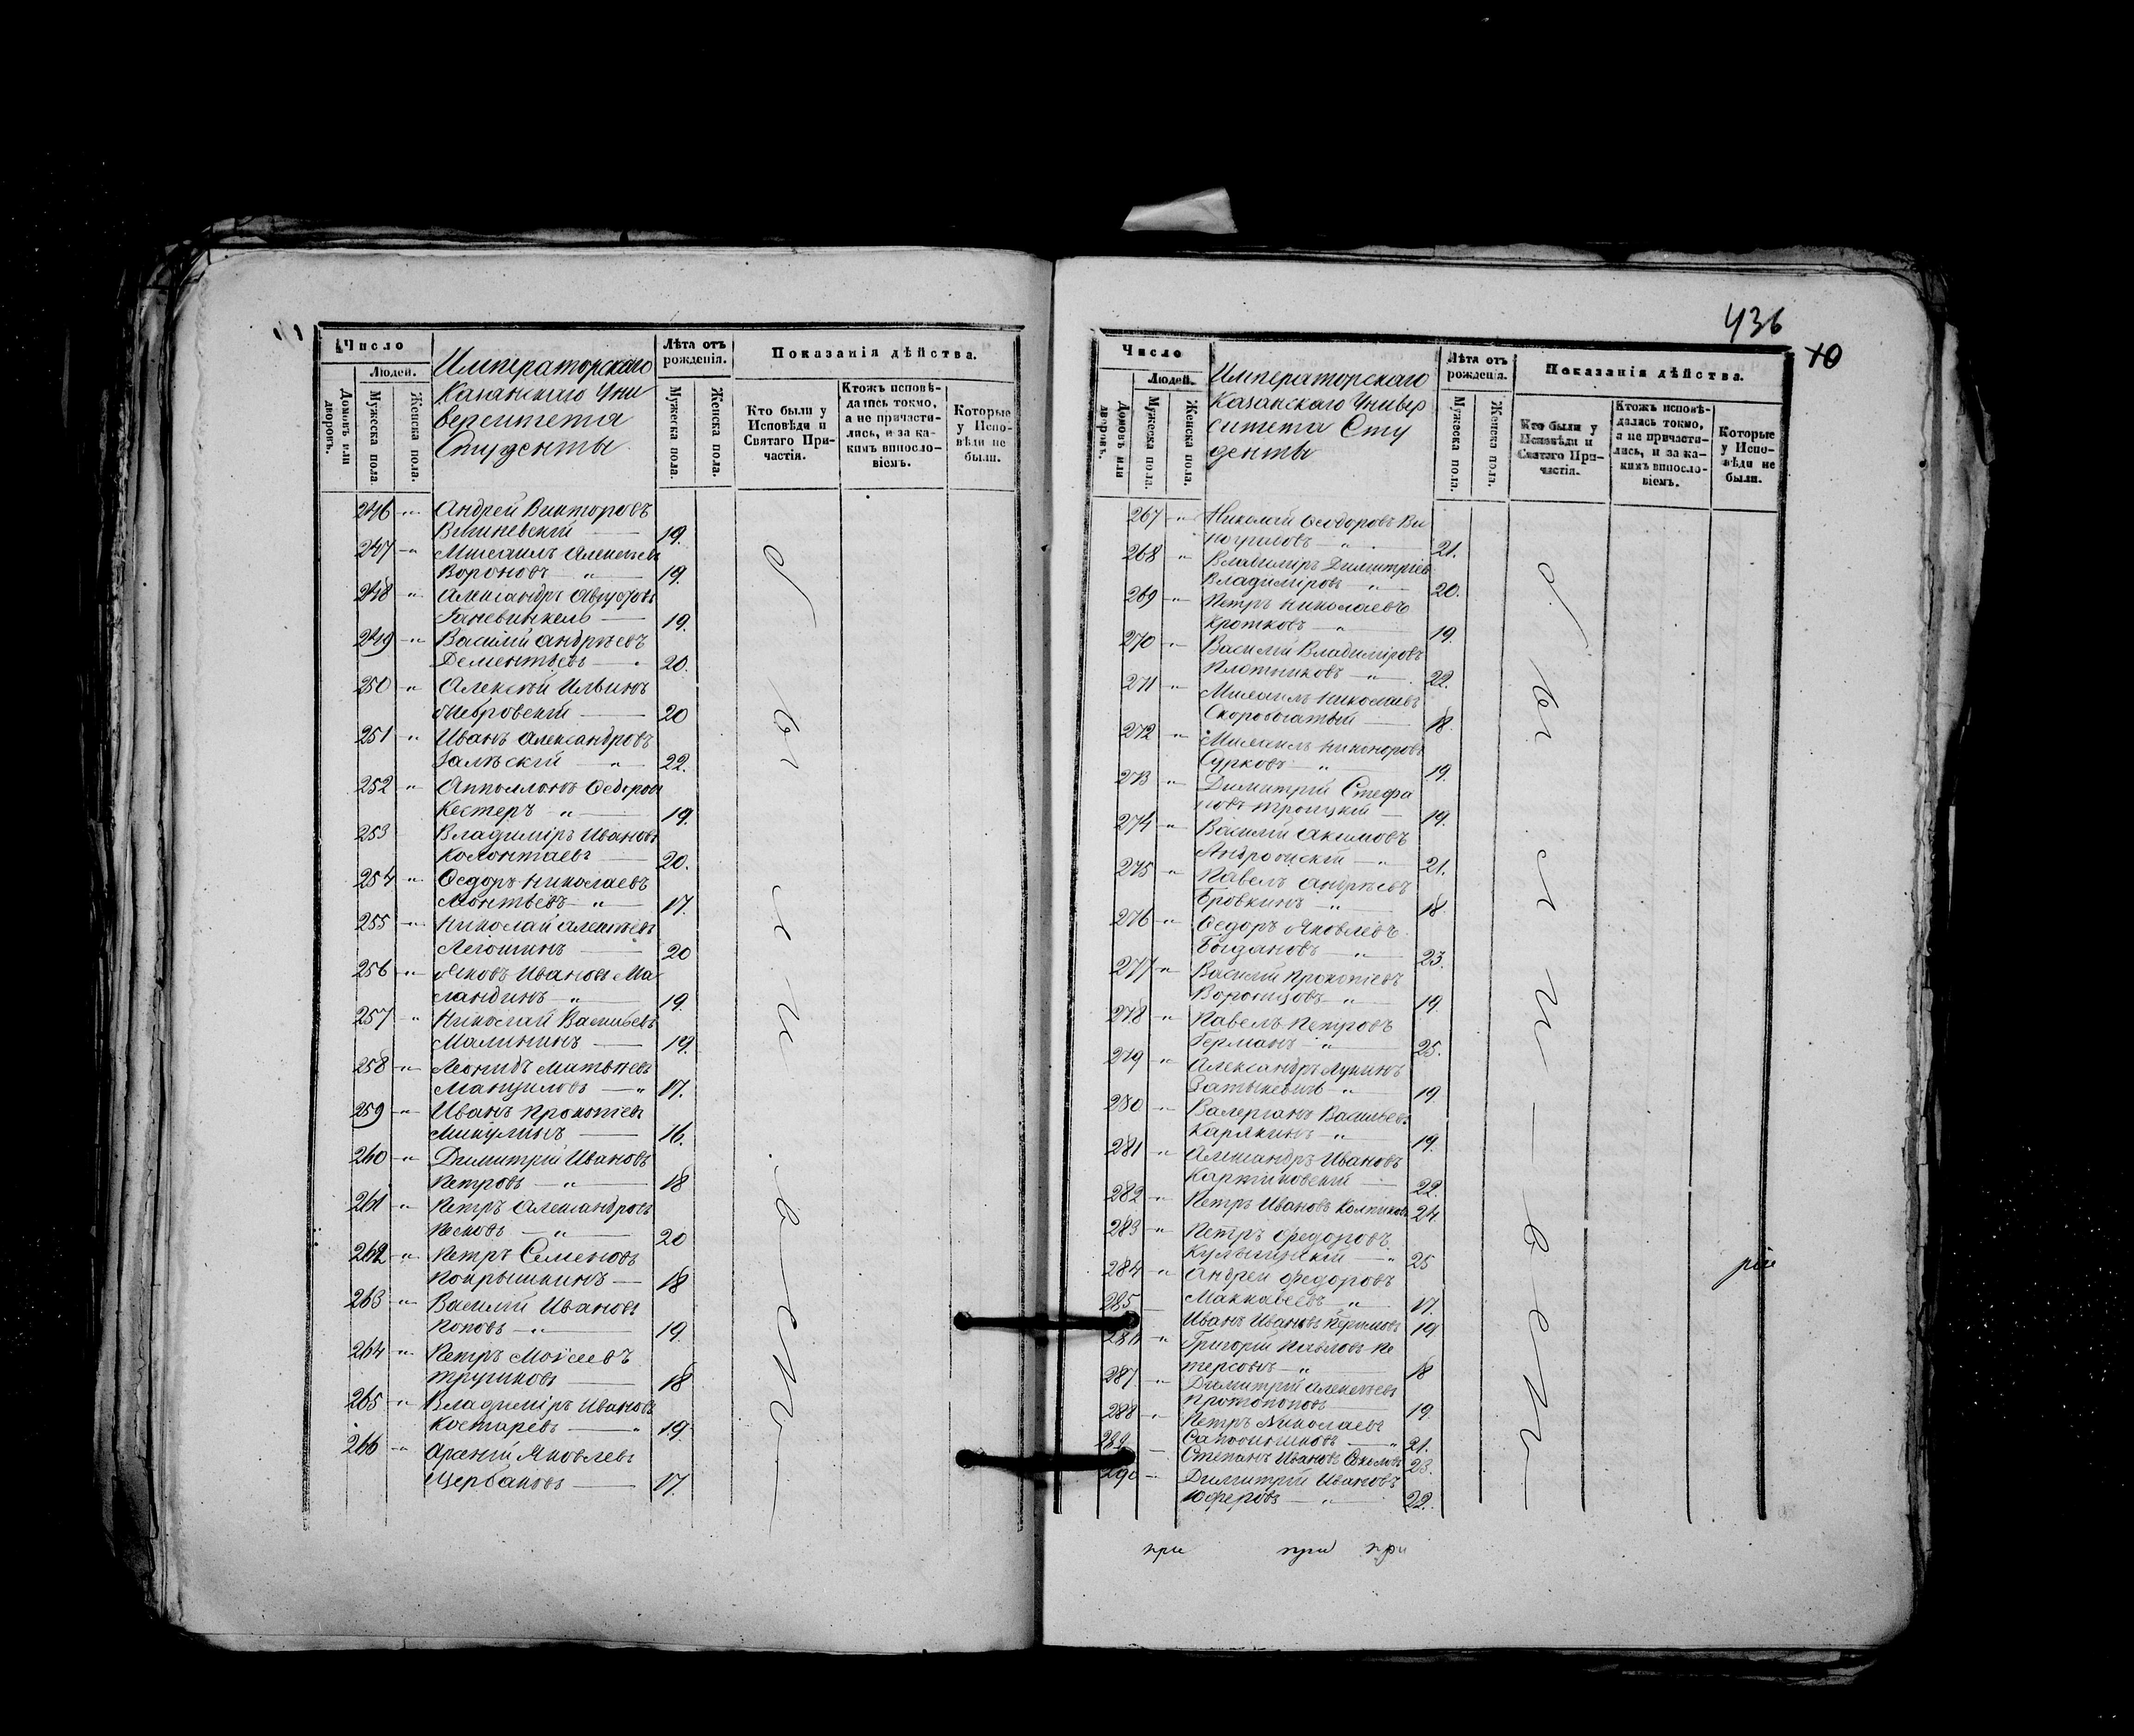 Число
Людей.
Домовъ или дворовъ.
Мужеска пола.
Женска пола.
Императорскаго
Казанскаго Уни
верситета
Студенты.
Лѣта отъ рожденія.
Мужеска пола.
Женска пола.
Показанія дѣйства.
Кто были у Исповѣди и Святаго Причастія.
Ктожъ исповѣдались токмо, а не причастились, и за какимъ винословіемъ.
Которые у Исповѣди не были.
246 " Андрей Викторовъ
Вишневскій 19.
247 " Михаилъ Алексѣевъ
Вороновъ " 19.
248 " Александръ Августовъ
Ганевинкель 19.
249 " Василій Андрѣевъ
Дементьевъ 20.
250 " Алексѣй Ильинъ
20
251 " Иванъ Александровъ
Залѣскій " 22.
252 " Апполлонъ Федоровъ
Кестеръ " 19.
253 Владиміръ Ивановъ
Колонтаевъ 20.
254 " Ѳедоръ Николаевъ
Леонтьевъ " 17.
255 " Николай Алексѣевъ
Легошинъ 20
256 " Яковъ Ивановъ Ма
ландинъ " 19.
257 " Николай Васильевъ
Малининъ 19.
258 " Леонидъ Матвѣевъ
Манциловъ " 17.
259 " Иванъ Прокопіевъ
Микулинъ 16.
260 " Димитрій Ивановъ
Петровъ " 18
261 " Петръ Александровъ
Песковъ " 20
262 " Петръ Семеновъ
Покрышкинъ 18
263 " Василій Ивановъ
Поповъ " 19.
264 " Петръ Моѵсеевъ
18
265 " Владиміръ Ивановъ
Костаревъ " 19.
266 " Арсеній Яковлевъ
Щербаковъ 17.
были
в с и
436
10
Число
Людей.
Домовъ или дворовъ.
Мужеска пола.
Женска пола.
Императорскаго
Казанскаго Универ
ситета Сту
денты
Лѣта отъ рожденія.
Мужеска пола.
Женска пола.
Показанія дѣйства.
Кто были у Исповѣди и Святаго Причастія.
Ктожъ исповѣдались токмо, а не причастились, и за какимъ винословіемъ.
Которые у Исповѣди не были.
267 " Николай Ѳеодоровъ Ви
нокуровъ " 21.
268 " Владиміръ Димитріевъ
Владиміровъ " 20.
269 " Петръ Николаевъ
Кротковъ " 19.
270 " Василій Владиміровъ
Плотниковъ " 22.
271 " Михаилъ Николаевъ
Скоробогатый 18.
272 " Михаилъ Никаноровъ
Сурковъ " 19.
273 " Димитрій Стефа
новъ Троицкій 19.
274 " Василій Акимовъ
21.
275 " Павелъ Андрѣевъ
Бровкинъ " 18.
276 " Ѳедоръ Яковлевъ
Богдановъ " 23.
277 " Василій Прокопіевъ
Воронцовъ " 19
278 " Павелъ Петровъ
Германъ " 25.
279 " Александръ Лукинъ
Затыкевичъ " 19.
280 " Валеріанъ Васильевъ
Карякинъ " 19.
281 " Александръ Ивановъ
22.
282 " Петръ Ивановъ Колпиковъ 24
283 " Петръ Федоровъ
25
284 " Андрей Федоровъ
Маккавеевъ " 17.
285 Иванъ Ивановъ 19
286 " Григорій Павловъ Пе
терсонъ " 18
287. " Димитрій Алексѣевъ
Протопоповъ 19.
288 " Петръ Николаевъ
Сапожниковъ " 21.
289 Степанъ Ивановъ Соколовъ 23.
290 Димитрій Ивановъ
Юферовъ " 22.
были
в с и
при при при